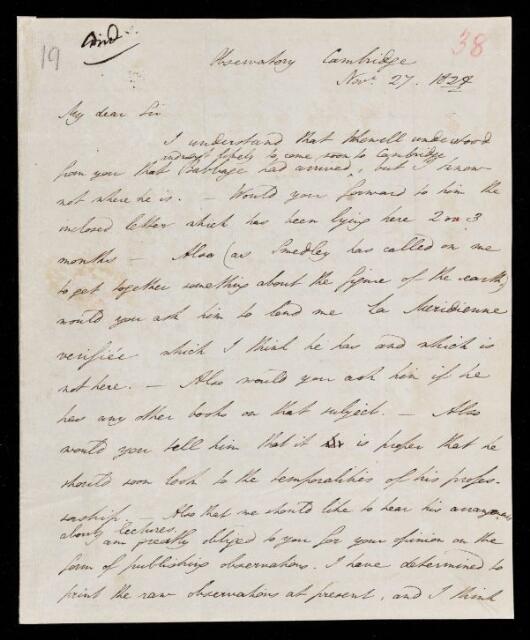 19
38
Observatory Cambridge
Nov. 27. 1828
My dear Sir
I understand that Whewell understood
and hopes to come soon to Cambridge
from you that Babbage had arrived, but I know
not where he is. — Would you forward to him the
inclosed letter which has been lying here 2 or 3
months — Also (as Smedley has called on me
to get together something about the figure of the earth)
would you ask him to lend me La Meridienne
verifiée which I think he has and which is
not here. — Also would you ask him if he
has any other books on that subject. — Also
would you tell him that it is proper that he
should soon look to the temporalities of his profes-
sorship. Also that we should like to hear his arrangements
about lectures.
am greatly obliged to you for your opinion on the
form of publishing observations. I have determined to
print the raw observations at present, and I think